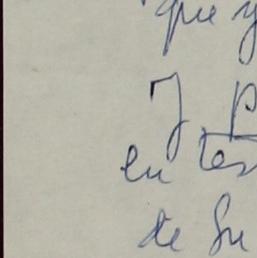 que y
J. P
en tes
de Su